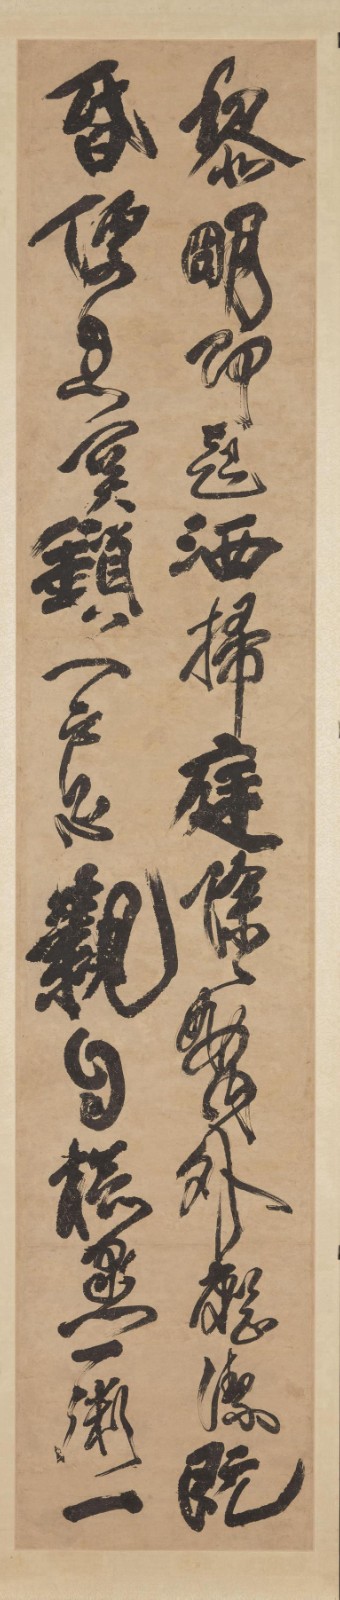 黎明即起洒掃庭除要內外整潔既
昏便息關鎖門戶必親自檢點一粥一